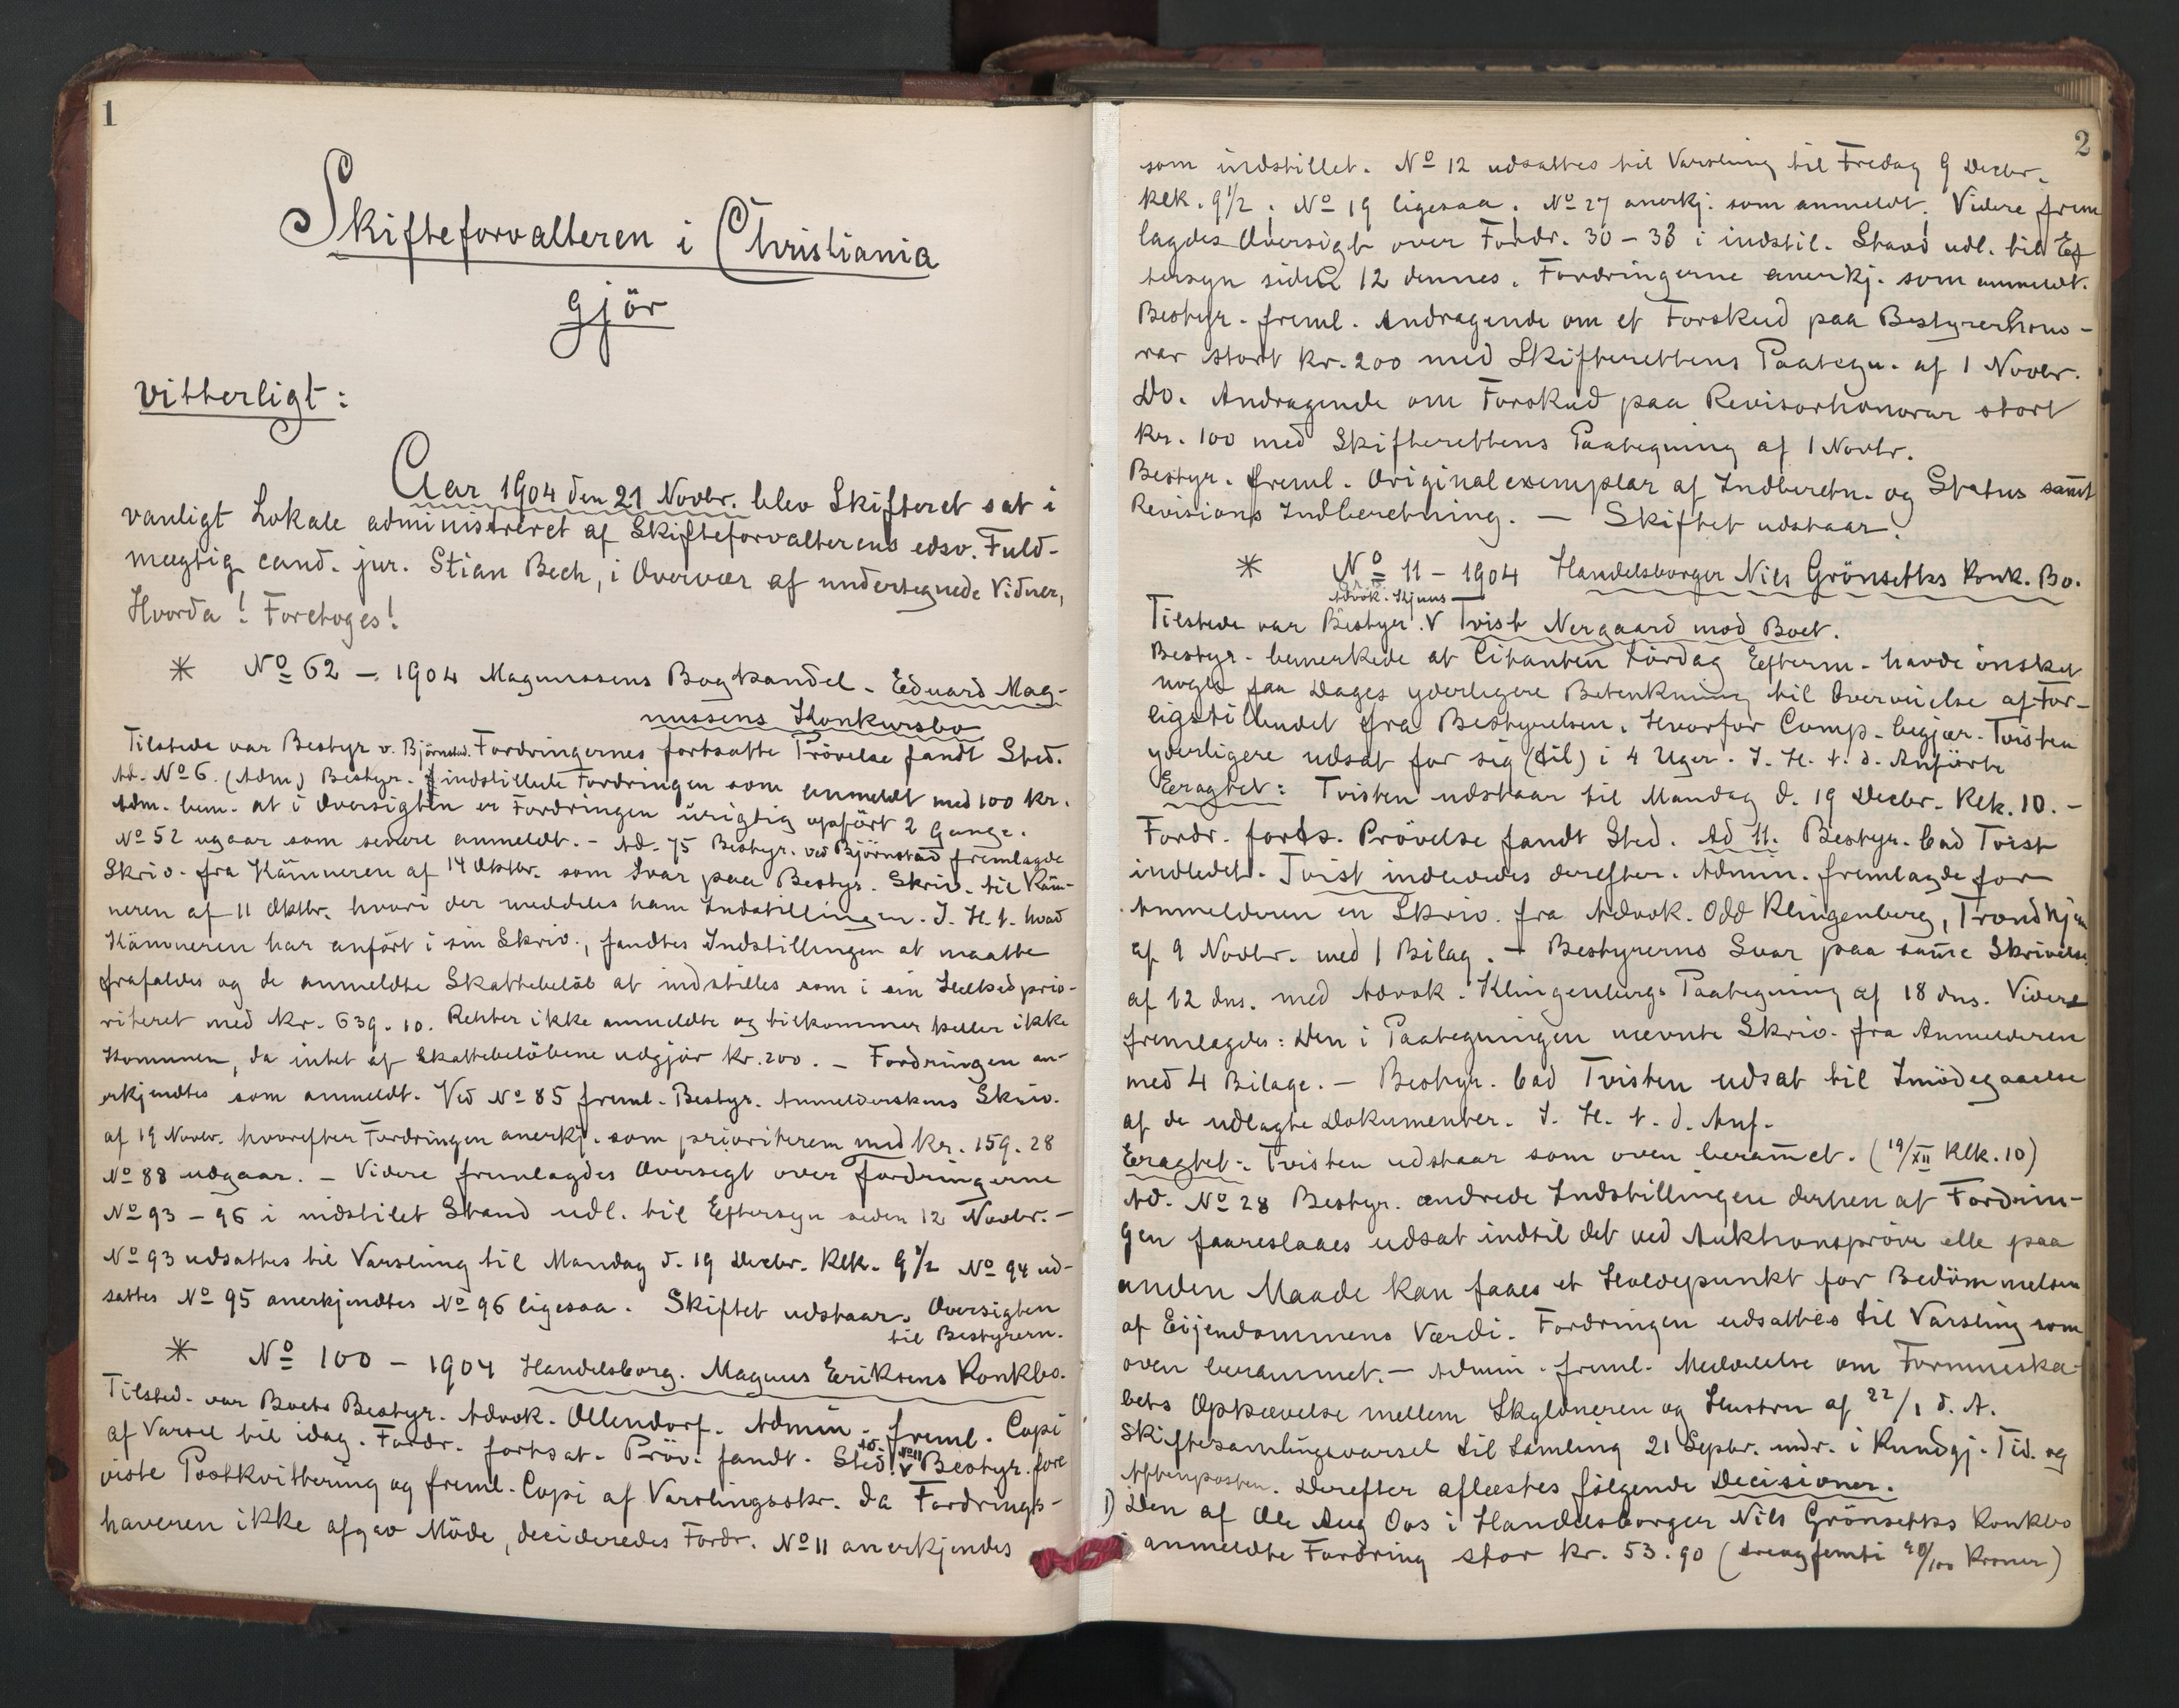 1
Skifteforvalteren i Christiania
gjör
vitterligt:
Aar 1904 den 21 Novbr. blev Skifteret sat i
vanligt Lokale administreret af Skifteforvalterens edsv. Fuld-
mægtig cand. jur. Stian Bech, i Overvær af undertegnede Vidner,
Hvorda! Foretoges!
* No 62 – 1904 Magnussens Boghandel – Eduard Mag-
nussens Konkursbo
Tilstede var Bestyr v. Björnstad. Fordringernes fortsatte Prövelse fandt Sted.
Ad. No 6. (Adm) Bestyr. indstillede Fordringen som anmeldt med 100 kr.
Adm. bem. at i Oversigten er Fordringen urigtig opfört 2 Gange.
No 52 ugaar som senere anmeldt. – Ad. 75 Bestyr. ved Björnstad fremlagde
Skriv. fra Kämneren af 14 Oktbr. som Svar paa Bestyr. Skriv. til Käm-
neren af 11 Oktbr. hvori der meddeles ham Indstillingen. I. H. t. hvad
Kämneren har anfört i sin Skriv., fandtes Indstillingen at maatte
frafaldes og de anmeldte Skattebelöb at indstilles som i sin Helhed prio-
riteret med kr. 639.10. Renter ikke anmeldte og tilkommer heller ikke
Kommunen, da intet af Skattebelöbene udgjör kr. 200. – Fordringen an-
erkjendtes som anmeldt. Ved No 85 freml. Bestyr. Anmelderskens Skriv.
af 19 Novbr. hvorefter Fordringen anerkj. som prioriteren med kr. 159.28
No 88 udgaar. – Videre fremlagdes Oversigt over fordringerne
No 93 – 96 i indstilet Stand udl. til Eftersyn siden 12 Novbr. –
No 93 udsattes til Varsling til Mandag d. 19 Decbr. Klk. 9½ No 94 ud-
sattes No 95 anerkjendtes No 96 ligesaa. Skiftet udstaar. Oversigten
til Bestyrern.
* No 100 – 1904 Handelsborg. Magnus Eriksens Konkbo.
Tilsted. var Boets Bestyr. Advok. Ollendorf. Admin. freml. Copi
af Varsel til idag. Fordr. fortsat. Pröv. fandt. Sted. Ad. No 11 Bestyr. fore
viste Postkvittering og freml. Copi af Varslingsskr. da Fordrings-
haveren ikke afgav Möde, decideredes Fordr. No 11 anerkjendes
2
som indstillet. No 12 udsattes til Varsling til Fredag 9 Decbr.
klk. 9½. No 19 ligesaa. No 27 anerkj. som anmeldt. Videre frem
lagdes Oversigt over Fordr. 30 – 33 i indstil. Stand udl. til Ef
tersyn siden 12 dennes. Fordringerne anerkj. som anmeldt.
Bestyr. freml. Andragende om et Forskud paa Bestyrerhono-
rar stort kr. 200 med Skifterettens Paategn. af 1 Novbr.
Do. Andragende om Forskud paa Revisorhonorar stort
kr. 100 med Skifterettens Paategning af 1 Novbr.
Bestyr. freml. Originalexemplar af Indberetn. og Status samt
Revisions Indberetning. – Skiftet udstaar.
* No 11 – 1904 Handelsborger Nils Grönsetts Konk. Bo.
Advok. Hjuus
Tilstede var Bestyr. V Tvist Nergaard mod Boet.
Bestyr. bemerkede at Citanten Lördag Efterm. havde önsket
nogle faa Dages yderligere Betenkning til Overveielse af For-
ligstilbudet fra Bestyrelsen. Hvorfor Comp. begjær. Tvisten
yderligere udsat for sig (til) i 4 Uger. I. H. t. d. Anförte
Eragtet: Tvisten udstaar til Mandag d. 19 Decbr. Klk. 10. –
Fordr. forts. Prövelse fandt Sted. Ad 11. Bestyr. bad Tvist
indledet. Tvist indlededes derefter. Admin. fremlagde for
Anmelderen en Skriv. fra Advok. Odd Klingenberg, Trondhjem
af 9 Novbr. med 1 Bilag. – Bestyrerns Svar paa samme Skrivelse
af 12 dns. med Advok. Klingenbergs Paategning af 18 dns. Videre
fremlagdes: Den i Paategningen nævnte Skriv. fra Anmelderen
med 4 Bilage. – Bestyr. bad Tvisten udsat til Imödegaaelse
af de udlagte Dokumenter. I. H. t. d. Anf.
Eragtet: Tvisten udstaar som oven berammet. (19/XII Klk. 10)
Ad. No 28 Bestyr. ændrede Indstillingen derhen at Fordrin-
gen faareslaaes udsat indtil det ved Auktionspröve elle paa
anden Maade kan faaes et Holdepunkt for Bedömmelsen
af Eijendommens Værdi. Fordringen udsattes til Varsling som
oven berammet. – Admin. freml. Meddelelse om Formueska-
bets Ophævelse mellem Skyldneren og Hustru af 22/1 d. A.
Skiftesamlingsvarsel til Samling 21 Septbr. indr. i Kundgj. Tid. og
Aftenposten. Derefter aflæstes fölgende Decisioner.
1) Den af Ole Aug Oos i Handelsborger Nils Grönsetts Konkbo
anmeldte Fordring stor kr. 53.90 (treogfemti 90/100 Kroner)